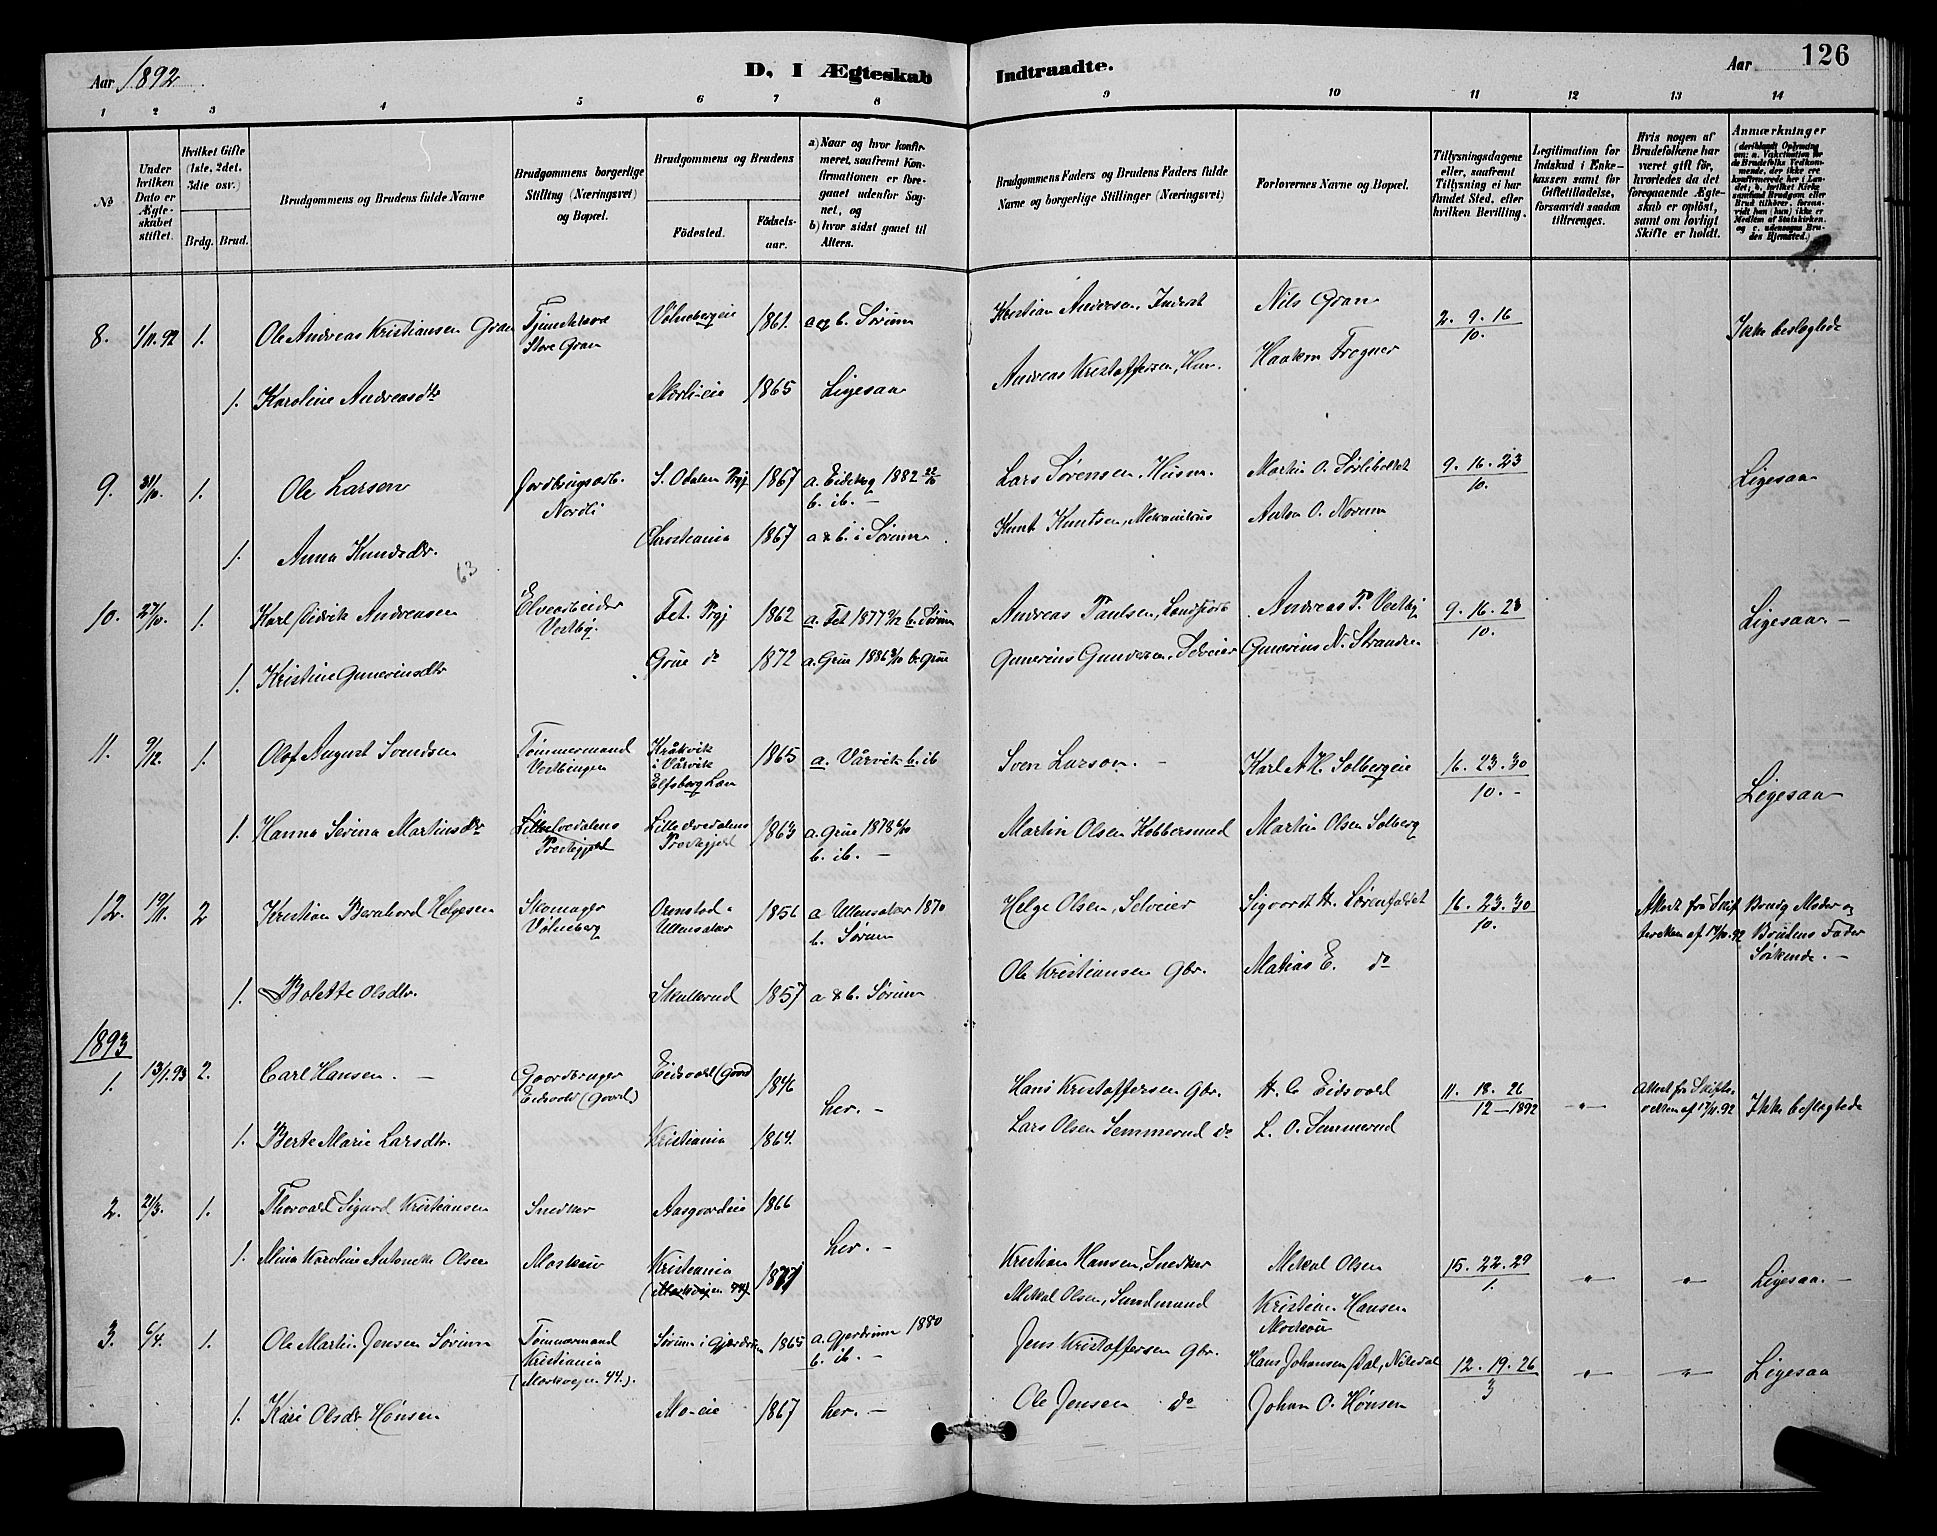 Aar 1892
D. I Ægteskab Indtraadte.
Aar
126
1 2 3 4 5 6 7 8 9 10 11 12 13 14
No
Under hvilken Dato er Ægteskabet stiftet.
Hvilket Gifte (1ste, 2det, 3die osv.)
Brdg. Brud.
Brudgommens og Brudens fulde Navne
Brudgommens borgerlige Stilling (Næringsvei) og Bopæl.
Brudgommens og Brudens
Fødested.
Fødselsaar.
a) Naar og hvor konfirmeret, saafremt Konfirmationen er foregaaet udenfor Sognet, og
b) hvor sidst gaaet til Alters.
Brudgommens Faders og Brudens Faders fulde Navne og borgerlige Stillinger (Næringsvei)
Forlovernes Navne og Bopæl.
Tillysningsdagene eller, saafremt Tillysning ei har fundet Sted, efter hvilken Bevilling.
Legitimation for Indskud i Enkekassen samt for Giftetilladelse, forsaavidt saadan tiltrænges.
Hvis nogen af Brudefolkene har været gift før, hvorledes da det foregaaende Ægteskab er opløst, samt om lovligt Skifte er holdt.
Anmærkninger (deriblandt Oplysning om: a. Vakcination for de Brudefolks Vedkommende, der ikke ere konfirmerede her i Landet; b. hvilket Kirkesamfund Brudgom eller Brud tilhører, forsaavidt han (hun) ikke er Medlem af Statskirken, og c. udensogns Brudes Hjemsted.)
8. 1/11.92 1. Ole Andreas Kristiansen Gran Store Gran Volnebergeie 1861. a og b. Sørum Kristian Andersen, Inderst Nils Gran 2. 9. 16 / 10. Ikke beslægtede
1. Karoline Andreasdtr Nordli-eie 1865 Ligesaa Andreas Kristoffersen, Hus. Haakon Frogner
9. 31/10. 1. Ole Larsen Jordbrugsarb. Nordli S. Odalen Prgj 1867 a. Eidskog 1882 22/10 b. ib. — Lars Sørensen, Husm. Martin O. 9. 16. 23 / 10. Ligesaa
1. Anna Knudsdtr. Christiania 1867 a & b. i Sørum Knut Knutsen, Mekanikus Anton O. Norum
63
10. 27/10. 1. Karl Didrik Andreasen Elvearbeider Vestby. Fet. Prgj 1862 a. Fet 1877 b. Sørum Andreas Paulsen, Andreas P. Vestby 9. 16. 23 / 10. Ligesaa —
1. Kristine Gunerinsdtr Grue do 1872 a. Grue 1886 b. Grue Gunerius Gundersen, Selveier Gunerius N. Stranden
11. 9/12. 1. Olof August Svendsen Tømmermand Vestbingen Kråkvik i Vårvik Elfsborg Län 1865 a. Vårvik b. ib Sven Larson. — Karl A. H. Solbergeie 16. 23. 30 / 10. — Ligesaa
1. Hanna Severina Martinsdtr Lilleelvedalens Prestegjeld Lilleelvedalens Prestegjeld 1863 a. Grue 1878 b. ib. — Martin Olsen Kobbersmed Martin Olsen Solberg
12. 19/11. 2 Kristian Bernhard Helgesen Skomager Volneberg Ormstad Ullensaker 1856 a. Ullensaker 1870 b. Sørum Helge Olsen, Selveier Sigvardt H. Lørenfaldet 16. 23. 30 / 10. Attest fra Skifteretten af 17/10.92 Brudg Moder og Brudens Fader Søskende. —
1. Bolette Olsdtr. Skullerud 1857 a & b. Sørum Ole Kristiansen Gbr. Matias E. do
1893
1. 13/1.93 2. Carl Hansen. — Gaardbruger Eidsvold (Gaard) Eidsvold (Gaard 1846 her. — Hans Kristoffersen Gbr. H. C. Eidsvold 11. 18. 26 / 12—1892 " Attest fra Skifteretten af 17/11.92 Ikke beslægtede
1. Berte Marie Larsdtr. Kristiania 1864. Lars Olsen Semmerud do L. O. Semmerud
2. 21/3. 1. Thorvald Sigurd Kristiansen Snedker Aasgaardeie 1866 her. — Kristian Hansen, Snedker Mikal Olsen 15. 22. 29 / 1. " " Ligesaa. —
1. Mina Karoline Antonette Olsen Kristiania (Markvejen 44) 1871 Mikal Olsen, Kristian Hansen
3. 6/4. 1. Ole Martin Jensen Sørum Tømmermand Kristiania (Markvejen 44.). Sørum i Gjerdrum 1865 a. Gjerdrum 1880 b. ib. — Jens Kristoffersen Gbr. Hans Johansen Dal, Nitedal 12. 19. 26 / 3 " " Ligesaa
1. Kari Olsdtr Hønsen Mo-eie 1867 her. — Ole Jensen do Johan O. Hønsen